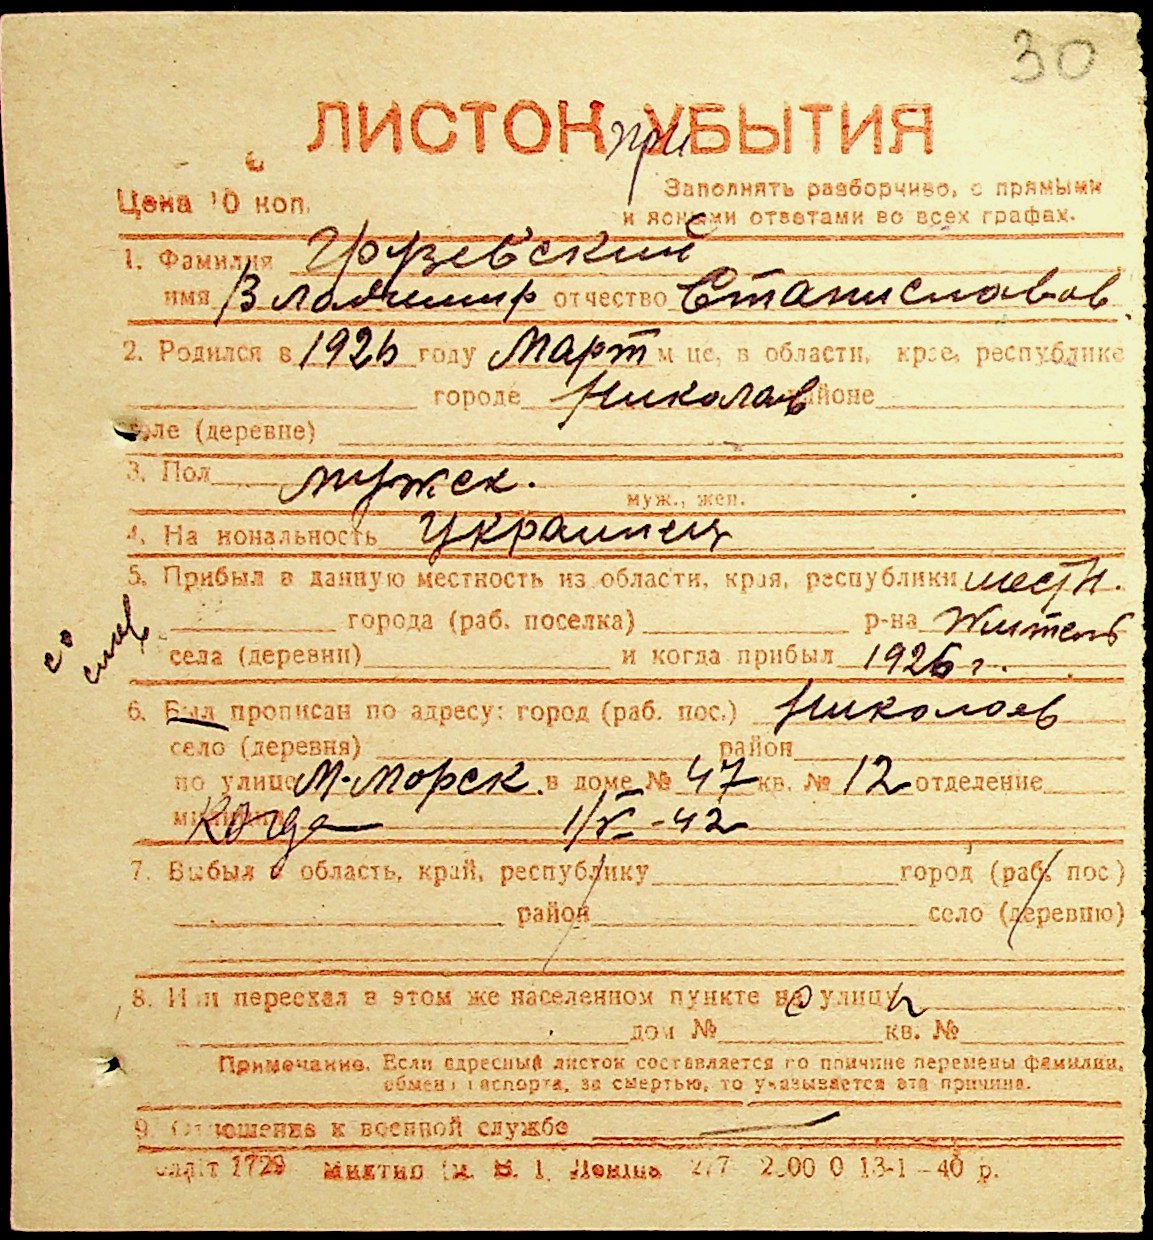 30
ЛИСТОК при УБЫТИЯ
Цена 10 коп.
Заполнять разборчиво, с прямыми
и ясными ответами во всех графах.
1. Фамилия Грузевский
имя Владимир отчество Станиславов
2. Родился в 1926 году Март м це, в области, крае, республике
городе Николаев районе
селе (деревне)
3. Пол мужск.
муж., жен.
4. На иональность Украинец
5. Прибыл в данную местность из области, края, республики местн.
города (раб. поселка) р-на житель
села (деревни) и когда прибыл 1926 г.
со слов
6. Был прописан по адресу: город (раб. пос.) Николаев
село (деревня) район
по улице М-Морск. в доме № 47 кв. № 12 отделение
милиции Когда 1/V-42
7. Выбыл в область, край, республику город (раб. пос.)
район село (деревню)
8. Или переехал в этом же населенном пункте на улицу
дом № кв. №
Примечание. Если адресный листок составляется по причине перемены фамилии,
обмена паспорта, за смертью, то указывается эта причина.
9. Отношение к военной службе
1729 В. І. Леніна 277 13-1-40 р.